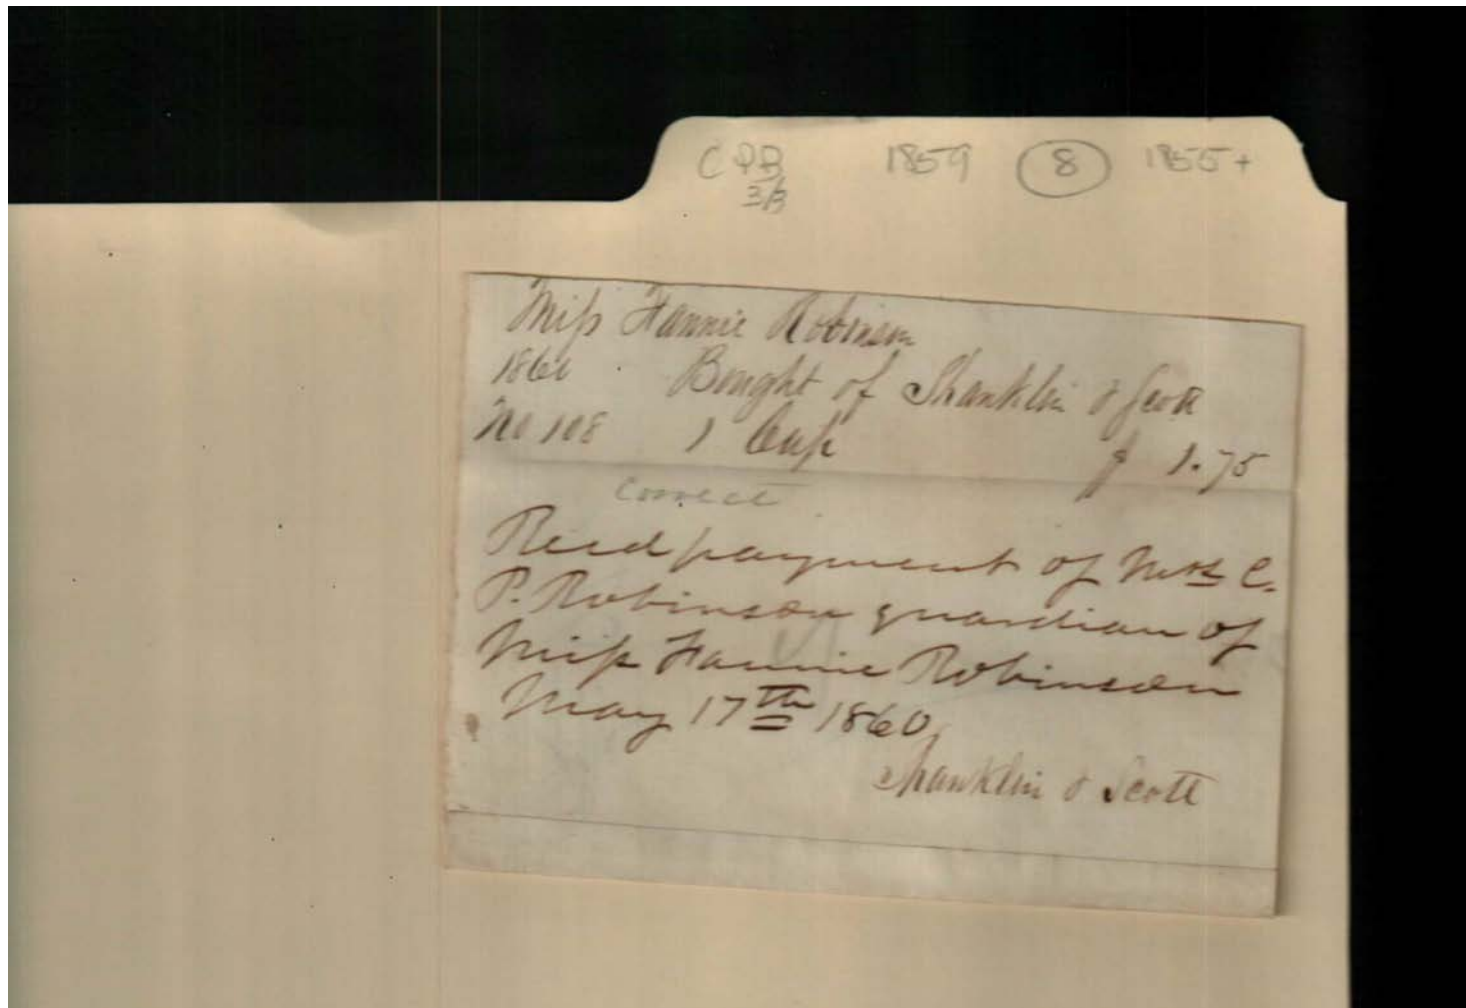 CPB 1859 8 1855+
3/3
Miss Fannie Robinson
1860 Bought of Shanklin & Scott
No 108 1 Cap $ 1.75
Correct
Recd payment of Mrs C.
P. Robinson guardian of
Miss Fannie Robinson
May 17th 1860
Shanklin & Scott